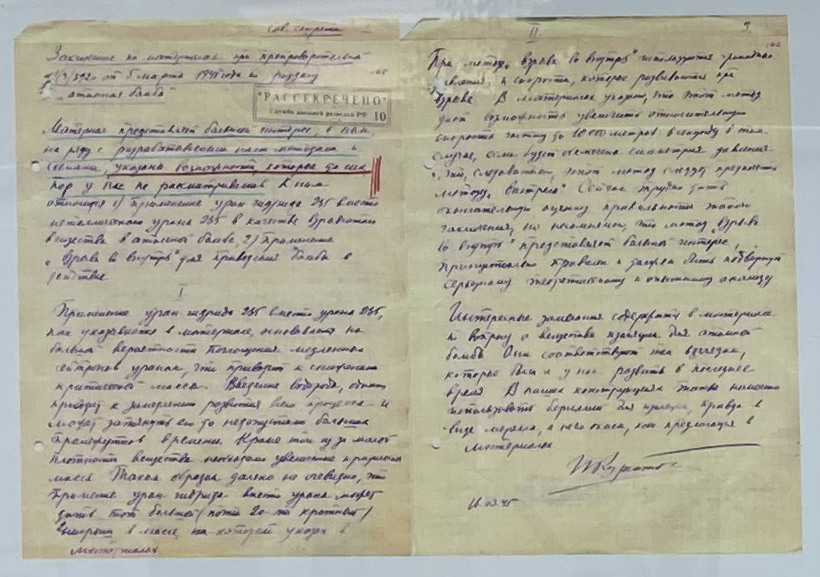 Сов. секретно
Заключение по материалам при препроводительной
от 5 марта 1945 года по разделу
"атомная бомба"
"РАССЕКРЕЧЕНО"
Служба внешней разведки РФ 10
Материал представляет большой интерес, в нем
на ряду с разрабатываемыми нами методами и
схемами, указаны возможности, которые до сих
пор у нас не рассматривались. К ним
относятся 1) применение уран-гидрида 235 вместо
металлического урана 235 в качестве взрывчатого
вещества в атомной бомбе, 2) Применение
"взрыва во внутрь" для приведения бомбы в
действие.
I
Применение уран-гидрида 235 вместо урана 235,
как указывается в материале, основывается на
большой вероятности поглощения медленных
нейтронов ураном, что приводит к снижению
критической массы. Введение водорода, однако
приводит к замедлению развития всего процесса и
может затянуть его до недопустимо больших
промежутков времени. Кроме того из за малой
плотности вещества необходимо увеличение критической
массы. Таким образом далеко не очевидно, что
применение уран-гидрида вместо урана может
дать тот большой (почти 20-ти кратный)
выигрыш в массе на который указан в
материалах
II
9.
При методе "взрыва во внутрь" используются громадные
давления и скорости, которые развиваются при
взрыве. В материалах указано, что этот метод
дает возможность увеличить относительную
скорость частиц до 10 000 метров в секунду в том
случае, если будет обеспечена симметрия давления
что, следовательно, этот метод следует предпочесть
методу "выстрела". Сейчас трудно дать
окончательную оценку правильности такого
заключения, но несомненно, что метод "взрыва
во внутрь" представляет большой интерес,
принципиально правилен и должен быть подвергнут
серьезному теоретическому и опытному анализу
Интересные замечания содержатся в материале
по вопросу о веществе изоляции для атомной
бомбы. Они соответствуют тем взглядам,
которые были и у нас развиты в последнее
время. В наших конструкциях также намечено
использовать бериллий для изоляции, правда в
виде металла, а не окиси, как предлагается в
материалах
И Курчатов
16.03.45